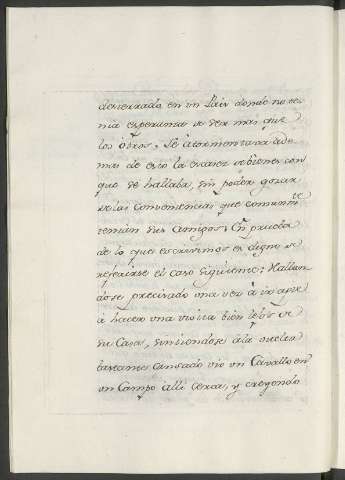 desterrado en un Pais donde no te-
nia esperanza de ver mas que
los otros. Le atormentava ade-
mas de esto la escasez de bienes con
que se hallaba, sin poder gozar
de las conveniencias que comunm.te
tenian sus Amigos. En prueba
de lo que escrivimos es digno de
referirse el caso siguiente: Hallan-
dose precisado una vez à ir à pie
à hacer una visita bien lejos de
su Casa, sintiendose ala vuelta
bastante cansado vio un Cavallo en
un Campo alli cerca, y creyendo